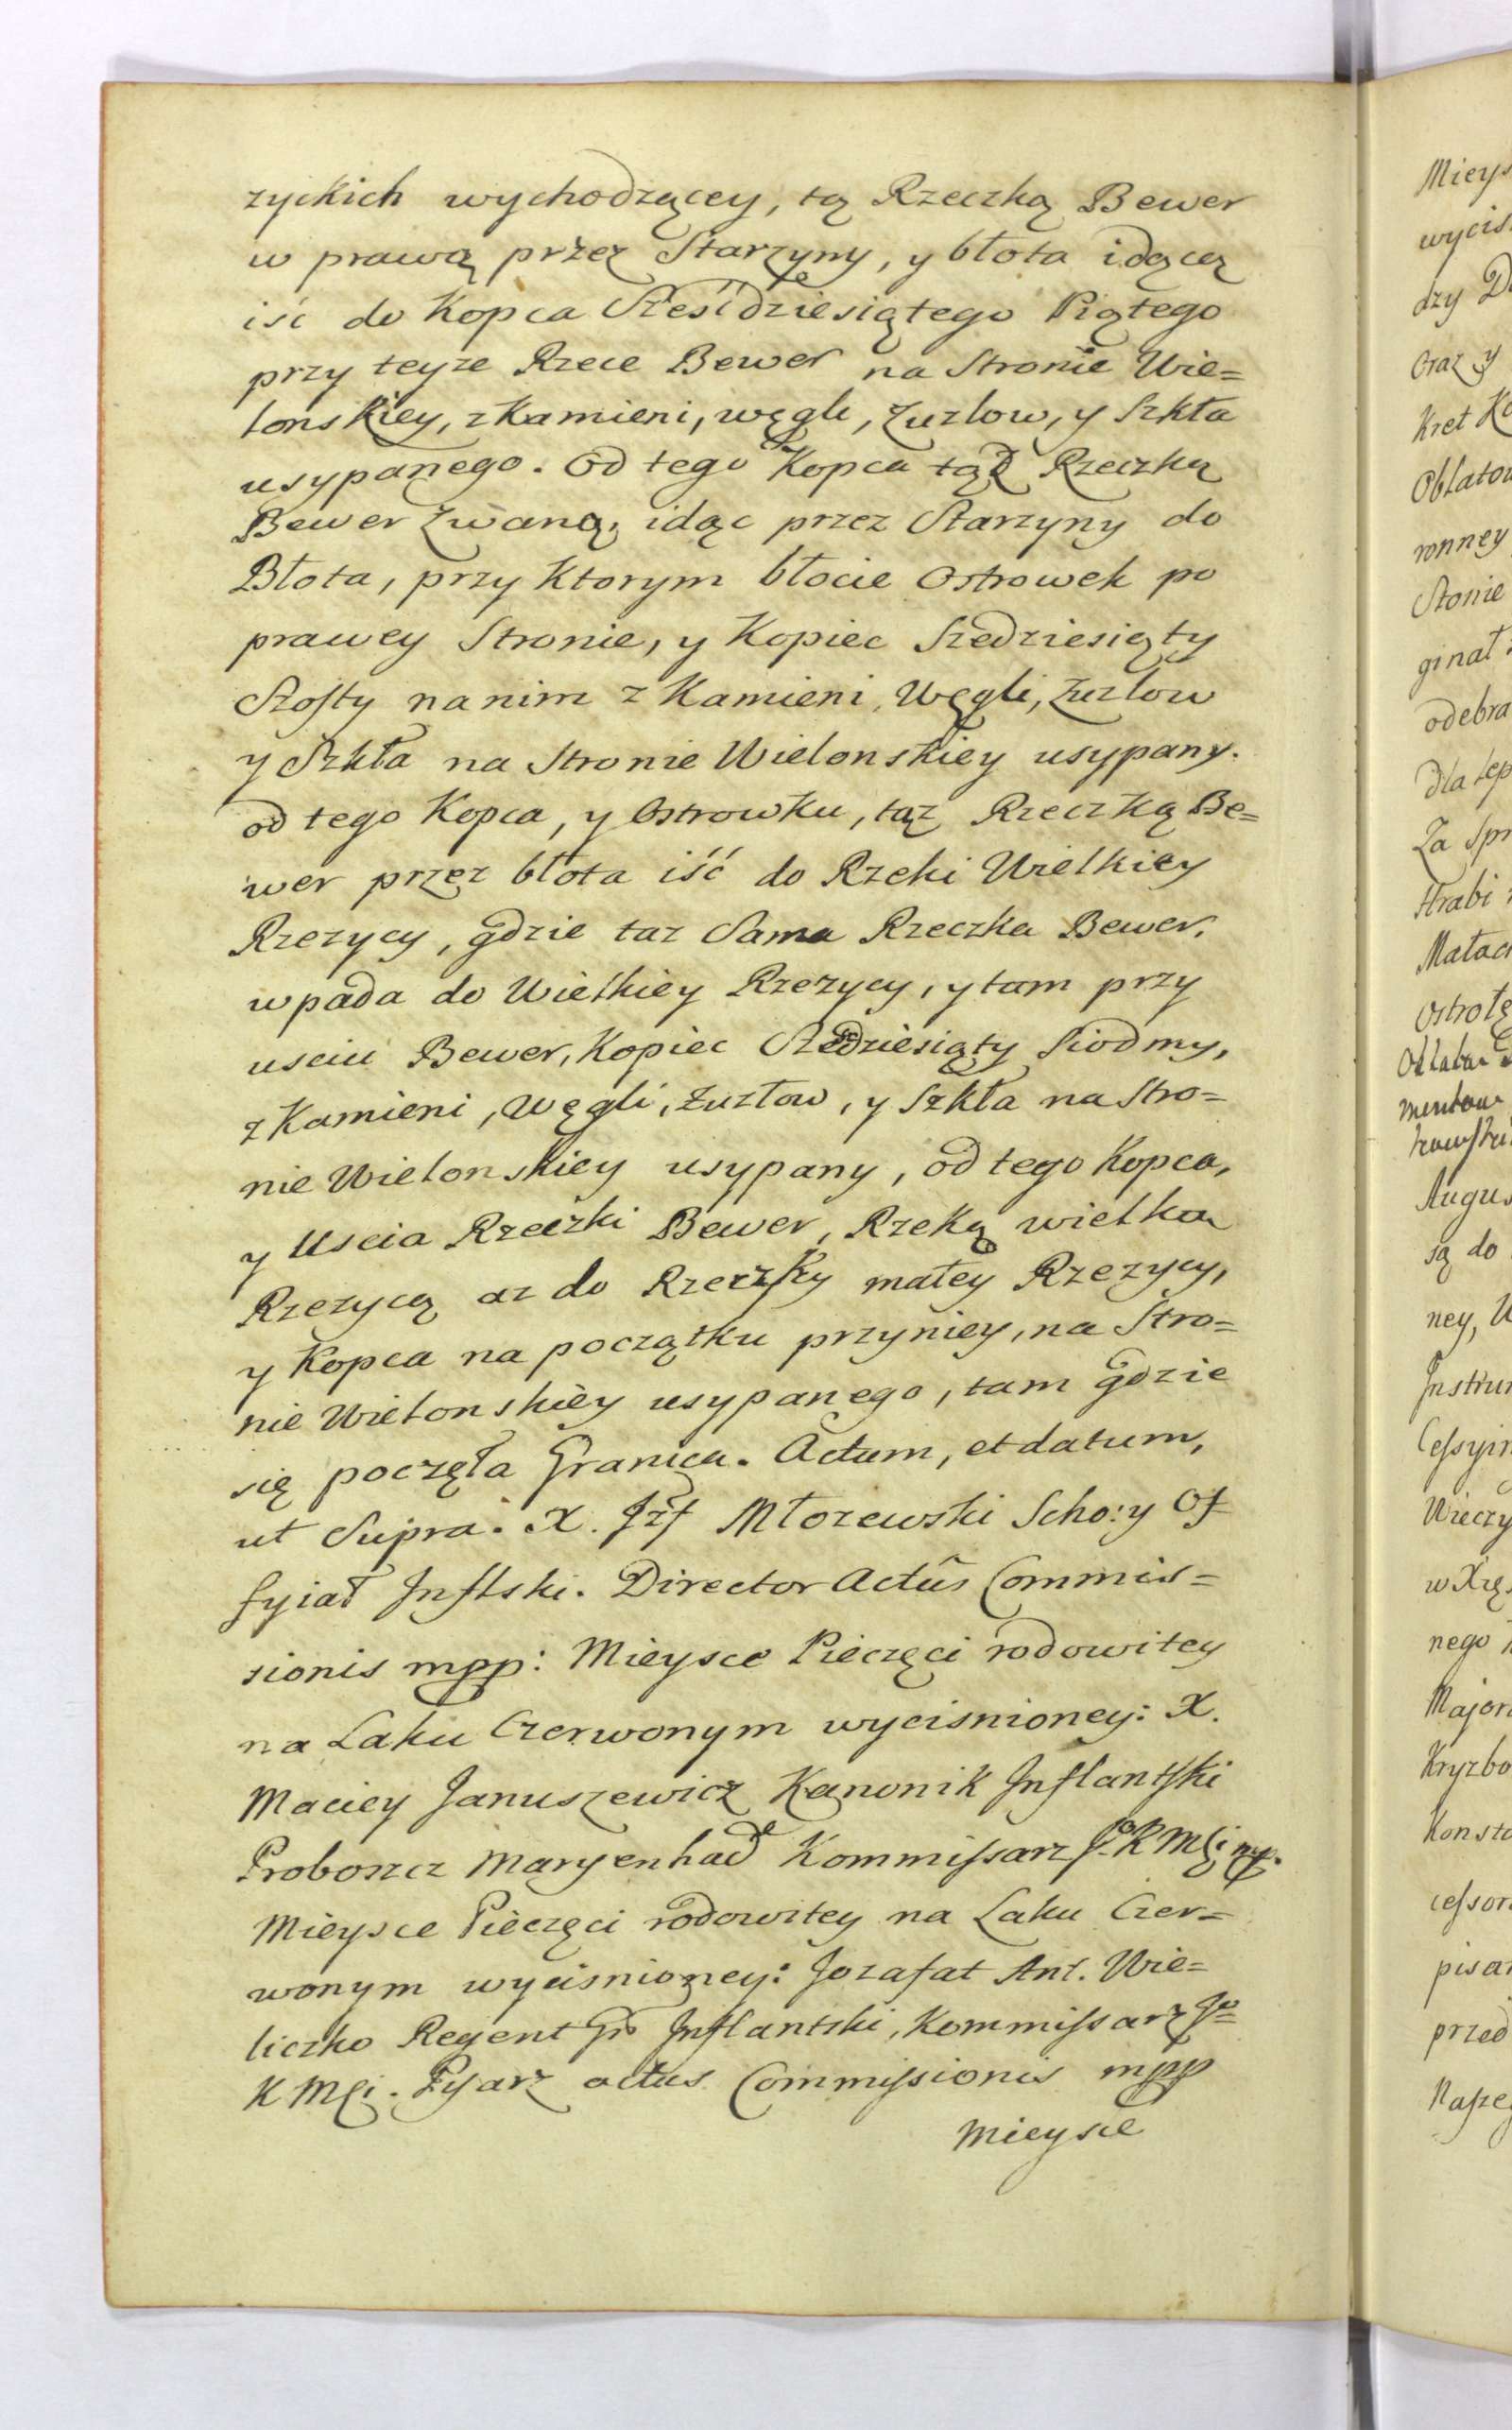 zyckich wychodzącey, tą Rzeczką Bewer
w prawą przez Starzyny, y błota idącą
iść do Kopca Sześćdziesiątego Piątego
przy teyze Rzece Bewer na Stronie Wie=
lonskiey, z Kamieni, węgli, Zuzlow, y Szkła
usypanego. Od tego Kopca tąż Rzeczką
Bewer Zwaną, idąc przez Starzyny do
Błota, przy Ktorym błocie Ostrowek po
prawey Stronie, y Kopiec Szedziesiąty
Szosty na nim z Kamieni, Węgli, Zuzlow
y Szkła na Stronie Wielonskiey usypany.
od tego Kopca, y Ostrowku, tąz Rzeczką Be=
wer przez błota iść do Rzeki Wielkiey
Rzezycy, gdzie taz Sama Rzeczka Bewer,
wpada do Wielkiey Rzezycy, y tam przy
usciu Bewer, Kopiec Szedziesiąty Siodmy,
z Kamieni, Węgli, Zuzlow, y Szkła na Stro=
nie Wielonskiey usypany, od tego Kopca,
y Uscia Rzeczki Bewer, Rzeką wielką
Rzezycą az do Rzeczky małey Rzezycy,
y Kopca na początku przyniey, na Stro=
nie Wielonskiey usypanego, tam gdzie
się poczęła Granica. Actum, et datum,
ut Supra. X. Jzf Młozewski Scho: y Of
fyiał Inflski. Director Actûs Commis=
sionis mpp: Mieysce Pieczęci rodowitey
na Laku Czerwonym wycisnioney: X.
Maciey Januszewicz Kanonik Inflantski
Proboszcz Maryenhad Kommissarz J. K Mći mp.
Mieysce Pieczęci rodowitey na Laku Czer=
wonym wycisnioney: Jozafat Ant. Wie=
liczko Regent Gr Inflantski, Kommissarz Jo=
K Mći. Pysarz actus Commissionis mpp
Mieysce
Mieys
wycis
dzy
Oraz y
Kret
Oblatow
ronney
Stonie
ginał
odebra
dla lep
Za Spr
Hrabi
Małac
Ostrołę
Augus
są do
ney,
Instru
Cessyin
Wieczy
w Xię
nego
Major
Kryzbo
Konsta
cessor
pisar
przed
Nasze